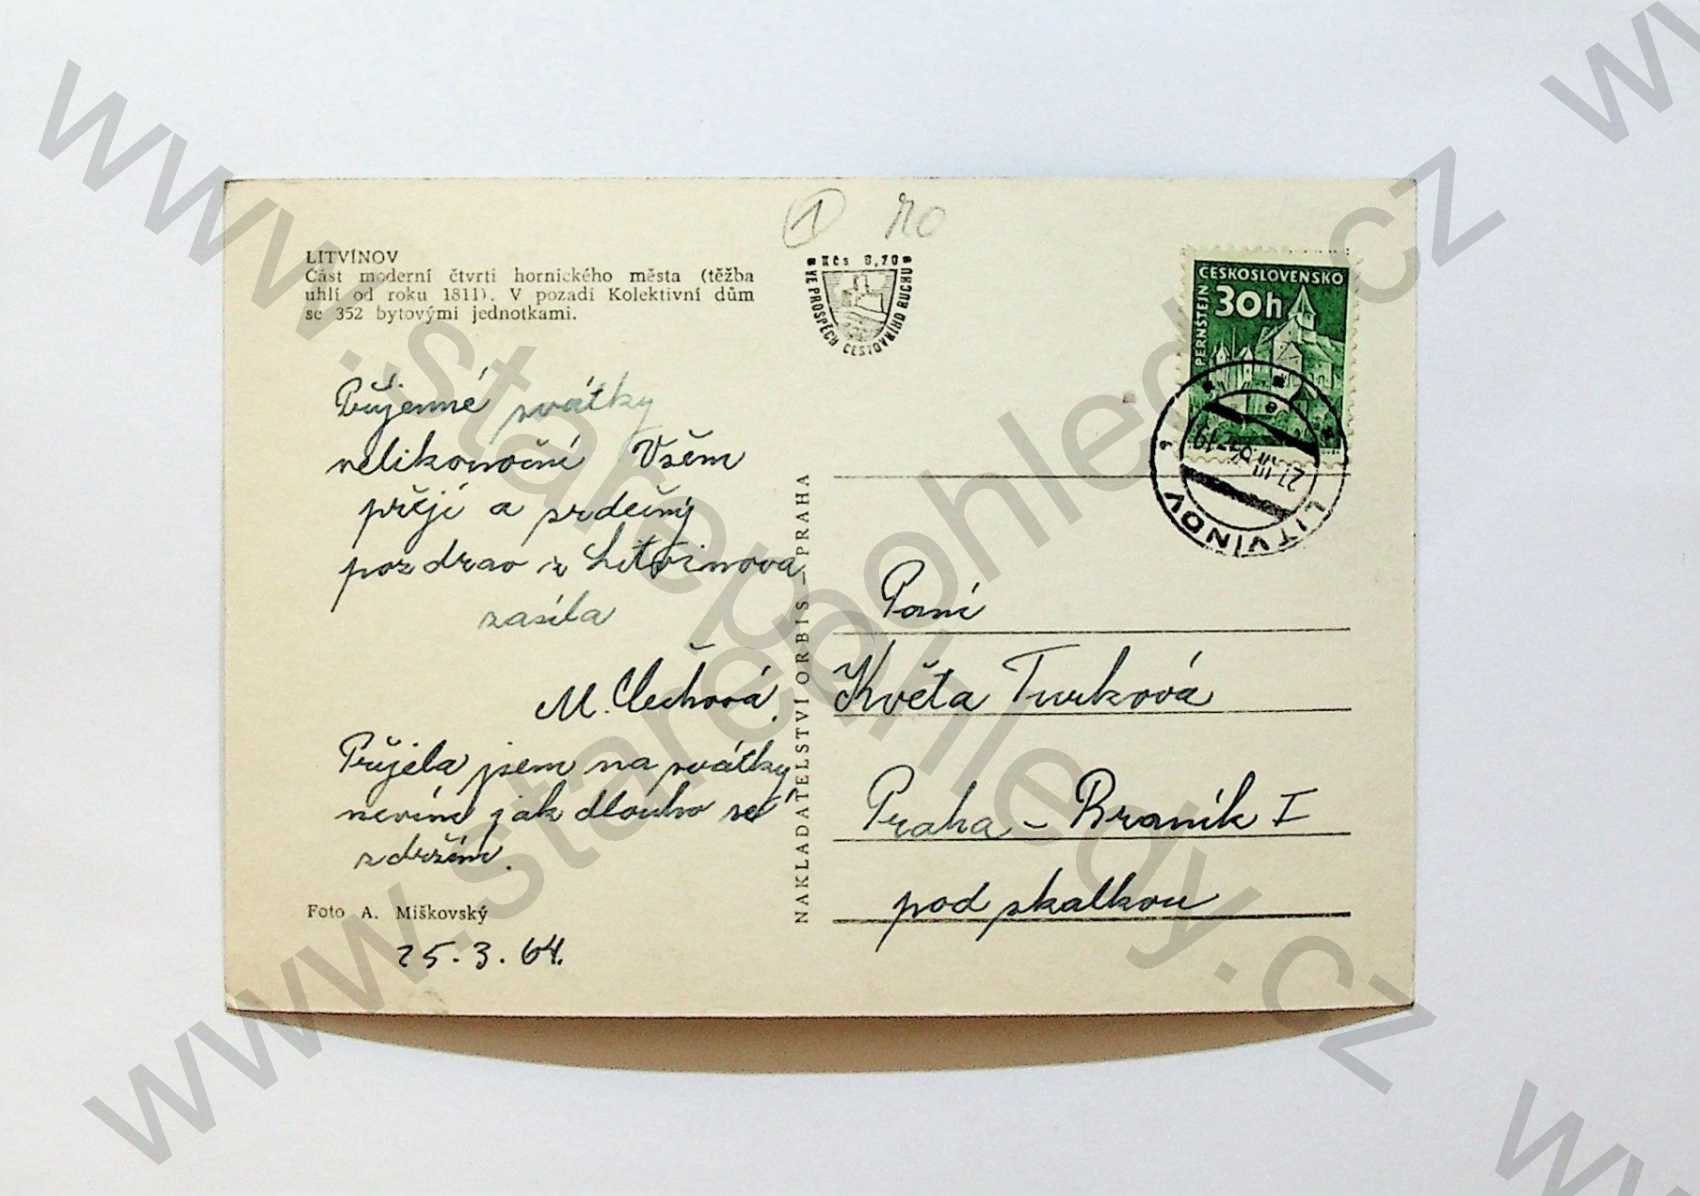 LITVÍNOV
Část moderní čtvrti hornického města (těžba
uhlí od roku 1811). V pozadí Kolektivní dům
se 352 bytovými jednotkami.
① 20
Kčs 0,70
VE PROSPĚCH CESTOVNÍHO RUCHU
ČESKOSLOVENSKO
30h
PERNŠTEJN
LITVÍNOV
27.III.64-19
Příjemné svátky
velikonoční Všem
přejí a srdečný
pozdrav z Litvínova
zasílá
M. Čechová.
Přijela jsem na svátky,
nevím jak dlouho se
zdržím.
Foto A. Miškovský
25.3.64.
NAKLADATELSTVÍ ORBIS - PRAHA
Paní
Květa Turková
Praha - Braník I
pod skalkou
www.starepohledy.cz
www.starepohledy.cz